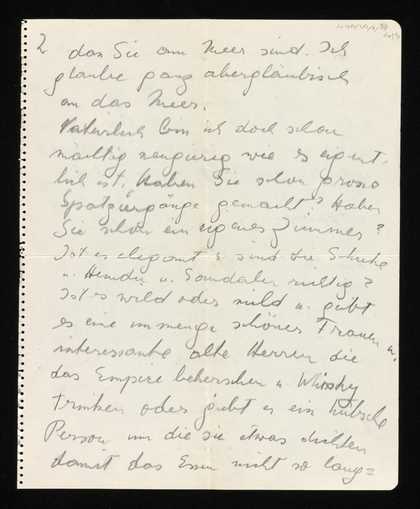 2 dass Sie am Meer sind. Ich
glaube ganz abergläubisch
an das Meer.
Natürlich bin ich doch schon
mächtig neugierig wie es eigent-
lich ist. Haben Sie schon grosse
Spatziergänge gemacht? Haben
Sie schon ein eigenes Zimmer?
Ist es elegant u sind die Schuhe
u. Hemden u. Sandalen richtig?
Ist es wild oder mild u. giebt
es eine unmenge schöner Frauen u.
interessante alte Herren die
das Empire beherschen u Whisky
trinken oder giebt es ein hübsche
Person um die sie etwas dichten
damit das Essen nicht so lang=